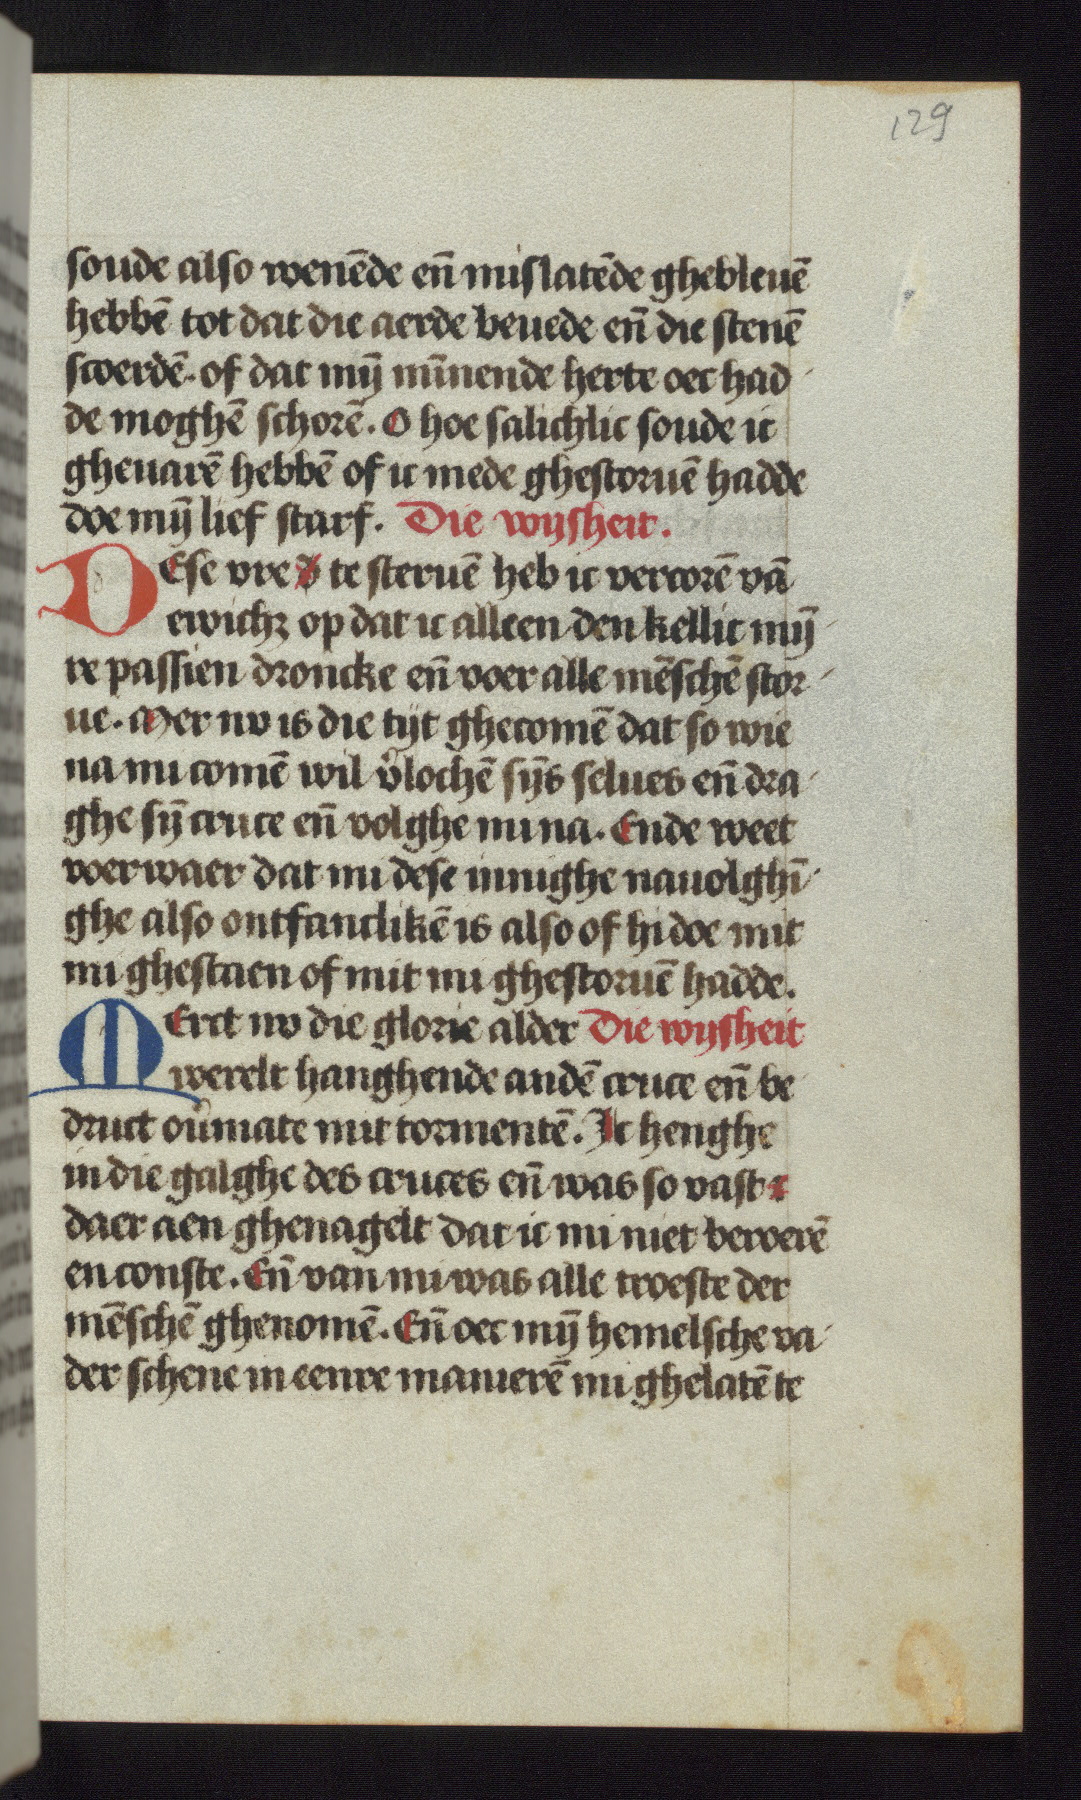 129
soude also wenēde eñ mislatēde ghebleuē
hebbē tot dat die aerde beuede eñ die stenē
scoerdē. of dat mȳ mīnende herte oec had
de moghē schorē. O hoe salichlic soude ic
gheuarē hebbē of ic mede ghestoruē hadde
doe mȳ lief starf. Die wijsheit.
DEse vre te steruē heb ic vercorē vā
ewichꝫ op dat ic alleen den kellic mij
re passien droncke eñ voer alle mēschē stor
ue. Mer nv is die tijt ghecomē dat so wie
na mi comē wil v̉lochē sijs selues eñ dra
ghe sȳ cruce eñ volghe mi na. Ende weet
voerwaer dat mi dese innighe nauolghī
ghe also ontfanclikē is also of hi doe mit
mi ghestaen of mit mi ghestoruē hadde.
MErct nv die glorie alder Die wijsheit
werelt hanghende andē cruce eñ be
druct oủmate mit tormentē. Ic henghe
in die galghe des cruces eñ was so vast
daer aen ghenagelt dat ic mi niet beroerē
en conste. Eñ van mi was alle troeste der
mēschē ghenomē. Eñ oec mȳ hemelsche va
der schene in eenre manierē mi ghelatē te